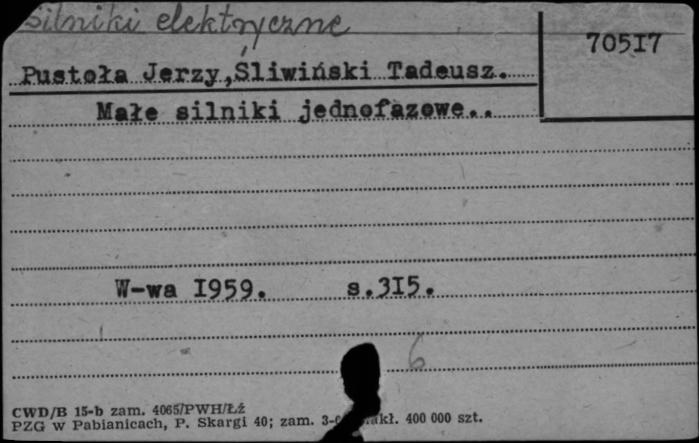 silniki elektryczne
70517
Pustoła Jerzy,Śliwiński Tadeusz.
Małe silniki jednofazowe..
W-wa 1959. s.315.
6
CWD/B 15-b zam. 4065/PWH/Łź
PZG w Pabianicach, P. Skargi 40; zam. 400 000 szt.